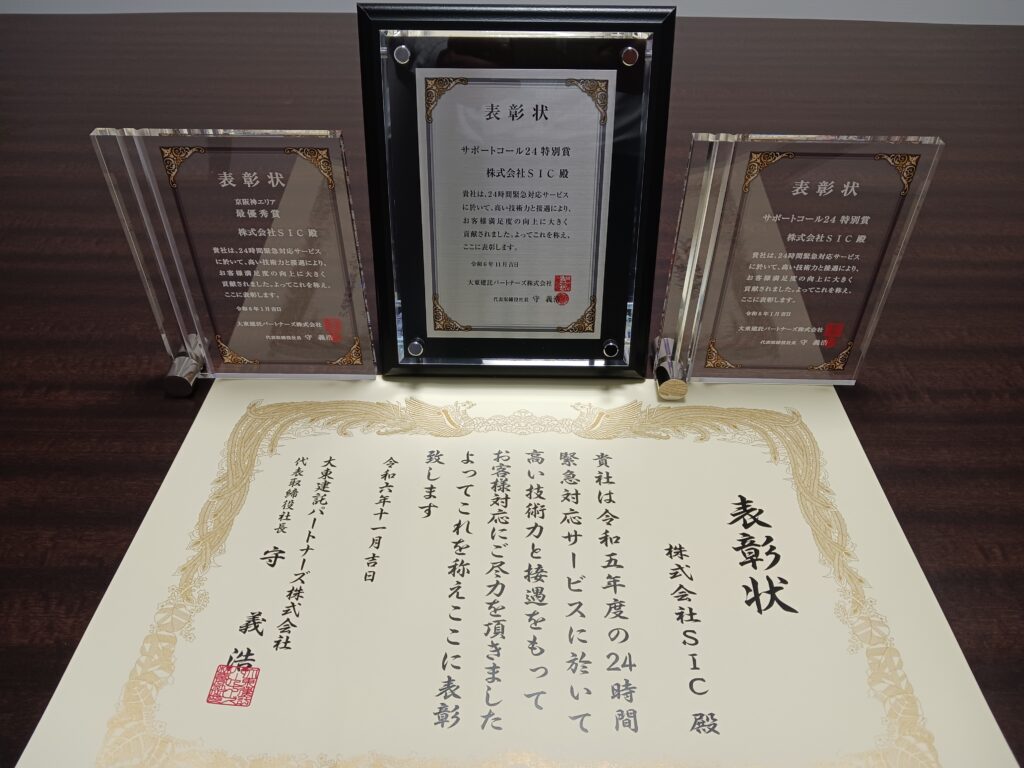 表彰状
京阪神エリア
最優秀賞
株式会社SIC 殿
貴社は、24時間緊急対応サービス
に於いて、高い技術力と接遇により、
お客様満足度の向上に大きく
貢献されました。よってこれを称え、
ここに表彰します。
令和6年1月吉日
大東建託パートナーズ株式会社
代表取締役社長 守 義浩
表彰状
サポートコール24 特別賞
株式会社SIC 殿
貴社は、24時間緊急対応サービス
に於いて、高い技術力と接遇により、
お客様満足度の向上に大きく
貢献されました。よってこれを称え、
ここに表彰します。
令和6年11月吉日
大東建託パートナーズ株式会社
代表取締役社長 守 義浩
表彰状
サポートコール24 特別賞
株式会社SIC 殿
貴社は、24時間緊急対応サービス
に於いて、高い技術力と接遇により、
お客様満足度の向上に大きく
貢献されました。よってこれを称え、
ここに表彰します。
令和6年1月吉日
大東建託パートナーズ株式会社
代表取締役社長 守 義浩
表彰状
株式会社SIC 殿
貴社は令和五年度の24時間
緊急対応サービスに於いて
高い技術力と接遇をもって
お客様対応にご尽力を頂きました
よってこれを称えここに表彰
致します
令和六年十一月吉日
大東建託パートナーズ株式会社
代表取締役社長 守 義浩